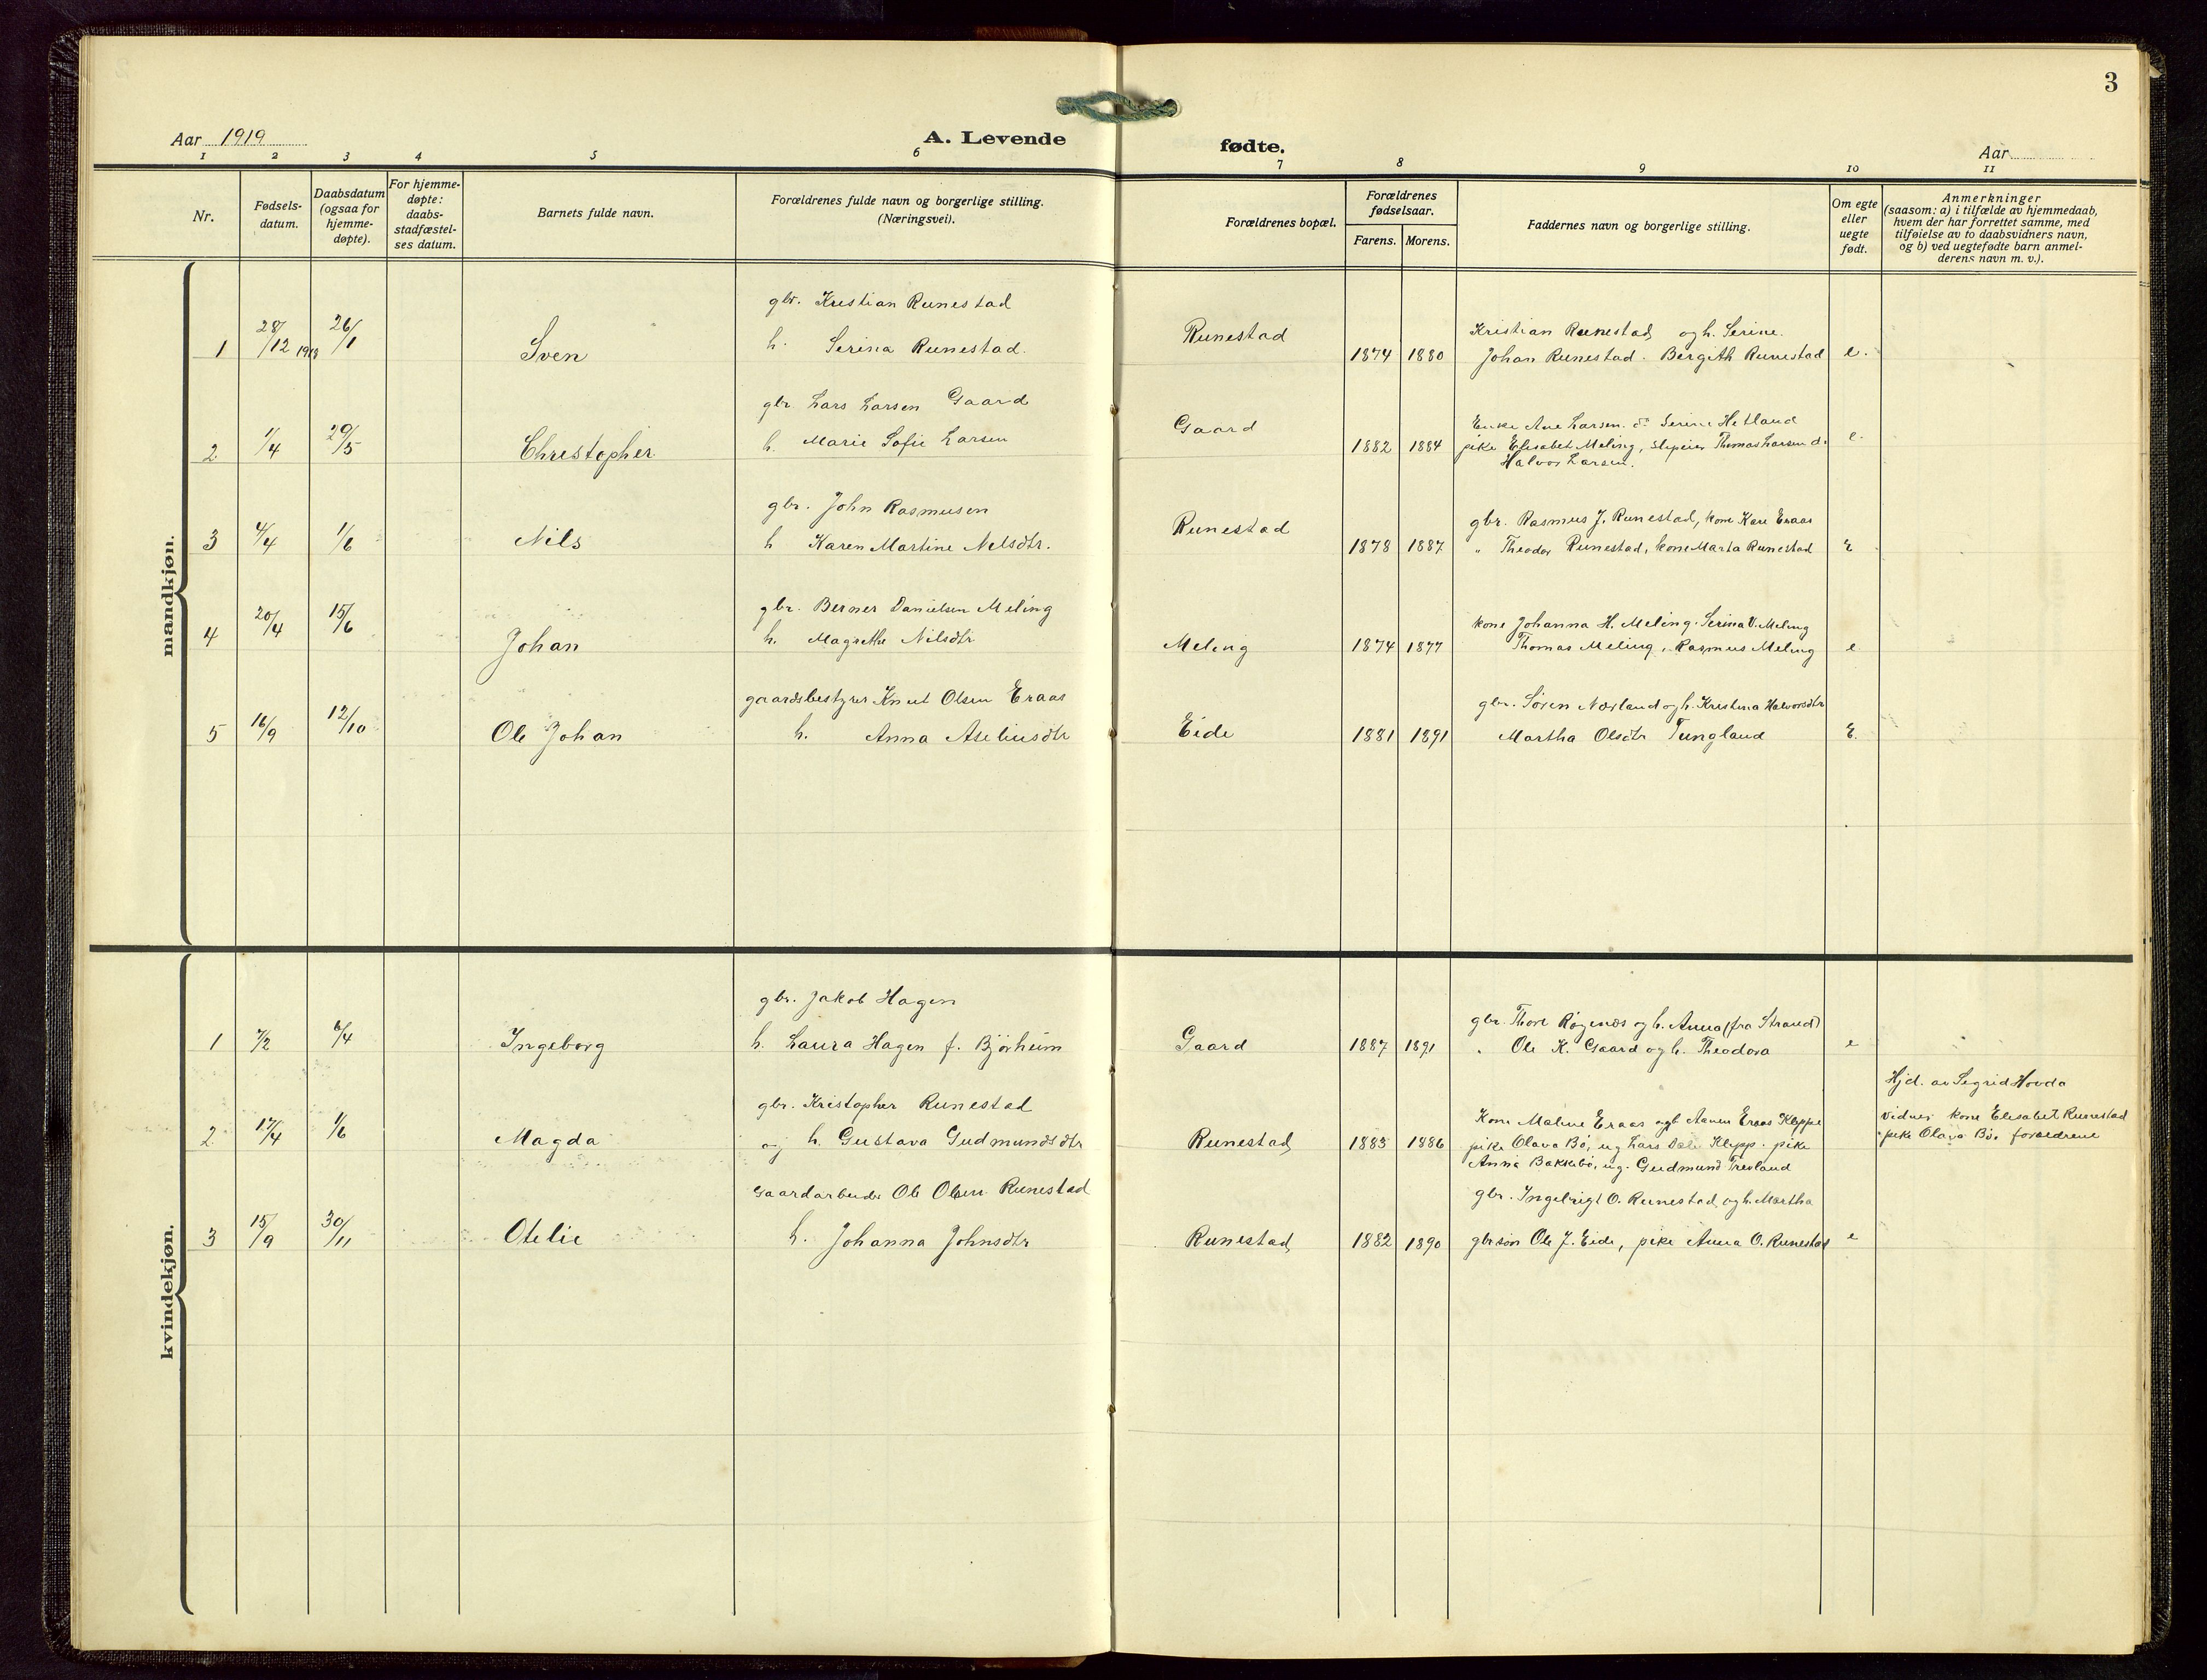 3
Aar 1919
A. Levende
fødte.
Aar
1 2 3 4 5 6 7 8 9 10 11
Nr.
Fødsels-
datum.
Daabsdatum
(ogsaa for
hjemme-
døpte).
For hjemme-
døpte:
daabs-
stadfæstel-
ses datum.
Barnets fulde navn.
Forældrenes fulde navn og borgerlige stilling.
(Næringsvei).
Forældrenes bopæl.
Forældrenes
fødselsaar.
Farens. Morens.
Faddernes navn og borgerlige stilling.
Om egte
eller
uegte
født.
Anmerkninger
(saasom: a) i tilfælde av hjemmedaab,
hvem der har forrettet samme, med
tilføielse av to daabsvidners navn,
og b) ved uegtefødte barn anmel-
derens navn m. v.).
mandkjøn.
gbr. Kristian Runestad
1 28/12 1918 26/1 Sven h. Serina Runestad. Runestad 1874 1880
Kristian Runestad og h. Serine.
Johan Runestad. Bergith Runestad e.
gbr. Lars Larsen Gaard
2 1/4 29/5 Christopher h. Marie Sofie Larsen Gaard 1882 1884
Enke Ane Larsen. d: Serine Hetland
pike Elisabet Meling, Thomas Larsen d. e.
Halvor Larsen.
gbr. John Rasmusen
3 4/4 1/6 Nils h Karen Martine Nelsdtr. Runestad 1878 1887
gbr. Rasmus J. Runestad, kone Kari Eraas
" Theodor Runestad, kone Marta Runestad e
gbr. Berner Danielsen Meling
4 20/4 15/6 Johan h. Magrethe Nilsdtr Meling 1874 1877
kone Johanna H. Meling. Serina V. Meling
Thomas Meling, Rasmus Meling e
gaardsbestyrer Knut Olsen Eraas
5 16/9 12/10 Ole Johan h. Anna Aseliusdtr Eide 1881 1891
gbr. Sören Nærland og h. Kristina Halvorsdtr
Martha Olsdtr Tungland E.
kvindekjøn.
gbr. Jakob Hagen
1 7/2 6/4 Ingeborg h. Laura Hagen f. Björheim Gaard 1887 1891
gbr. Thore Rögenes og h. Anna (fra Strand)
" Ole K. Gaard og h. Theodora e
gbr. Kristopher Runestad
2 17/4 1/6 Magda og h. Gustava Gudmundsdtr Runestad 1883 1886
Kone Maline Eraas ogb Aanen Eraas Kleppe
pike Olava Bö, ug Lars Dale Klepp. pike
Anna Bakkebö, ug. Gudmund Treoland
Hjd. av Sigrid Hovda
Vidner kone Elisabet Runestad
pike Olava Bö. foreldrene
Gaardarbeider Ole Olsen Runestad
3 15/9 30/11 Otelie h. Johanna Johnsdtr Runestad 1882 1890
gbr. Ingebrigt O. Runestad og h. Martha
gbr sön Ole J. Eide, pike Anna O. Runestad e